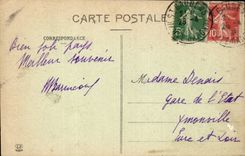 CARTE POSTALE
CORRESPONDANCE
Bien joli pays
Meilleur souvenir
Madame Denais
Gare de l'Etat
Ymonville
Eure et Loir